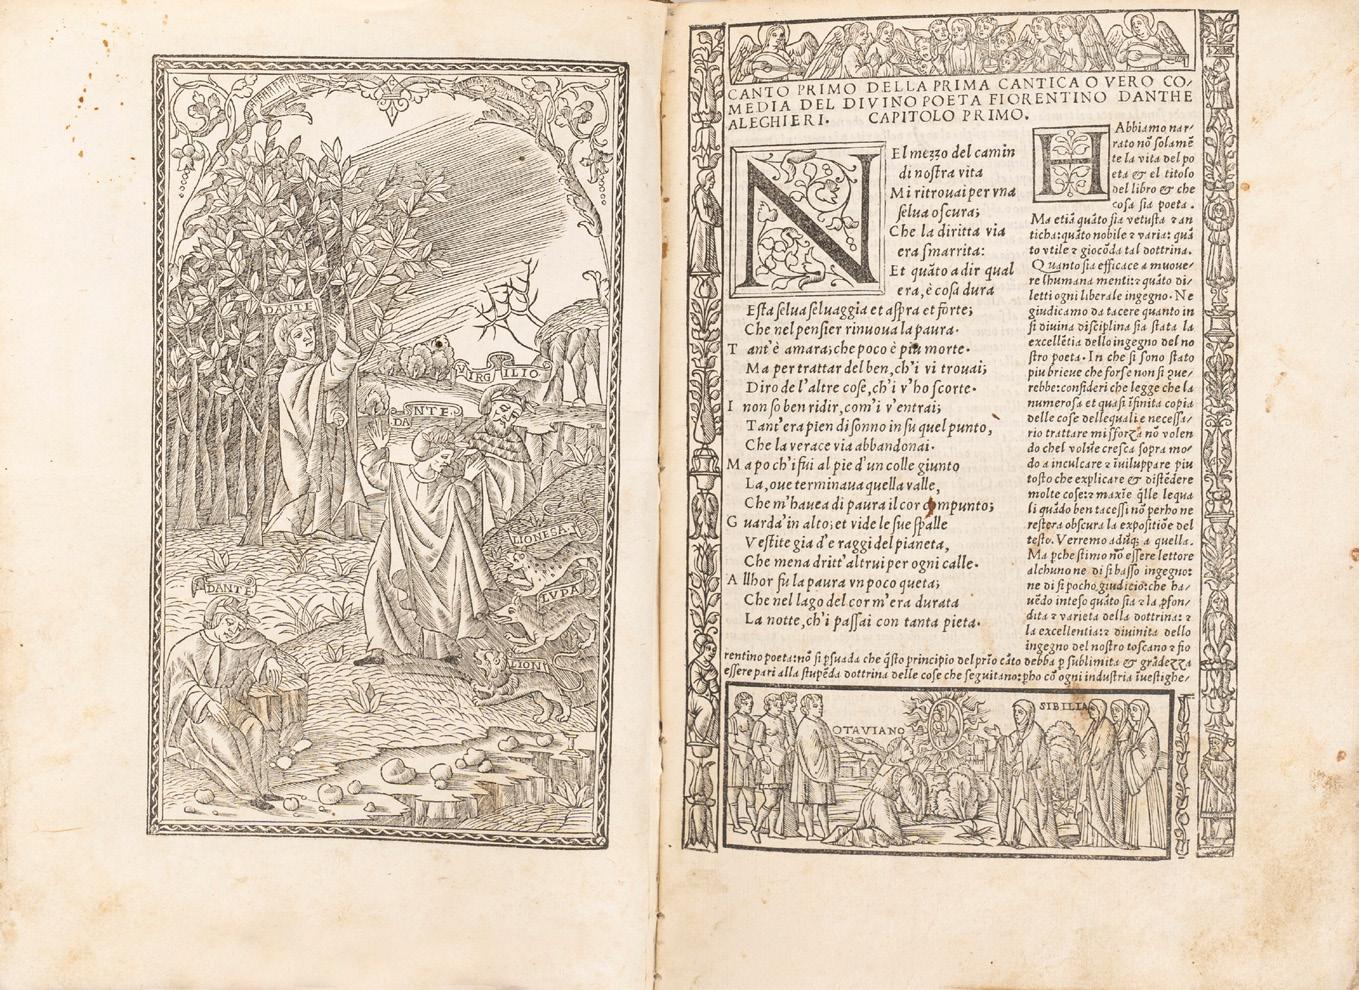 DANTE
VIRGILIO
DANTE
LIONESA
LVPA
LION
DANTE
CANTO PRIMO DELLA PRIMA CANTICA O VERO CO-
MEDIA DEL DIVINO POETA FIORENTINO DANTHE
ALEGHIERI. CAPITOLO PRIMO.
NEl mezzo del camin
di nostra vita
Mi ritrouai per vna
selua oscura;
Che la diritta via
era smarrita:
Et quāto a dir qual
era, è cosa dura
Esta selua seluaggia et aspra et forte;
Che nel pensier rinuoua la paura.
Tant'è amara; che poco è piu morte.
Ma per trattar del ben, ch'i vi trouai;
Diro de l'altre cose, ch'i v'ho scorte.
I non so ben ridir, com'i v'entrai;
Tant'era pien di sonno in su quel punto,
Che la verace via abbandonai.
Ma po ch'i fui al pie d'un colle giunto
La, oue terminaua quella valle,
Che m'hauea di paura il cor compunto;
Guarda'in alto; et vide le sue spalle
Vestite gia d'e raggi del pianeta,
Che mena dritt'altrui per ogni calle.
Allhor fu la paura vn poco queta;
Che nel lago del cor m'era durata
La notte, ch'i passai con tanta pieta.
HAbbiamo nar-
rato nō solamē
te la vita del po
eta & el titolo
del libro & che
cosa sia poeta.
Ma etiā quāto sia vetusta ꝛ an
ticha: quāto nobile ꝛ varia: quā
to vtile ꝛ giocōda tal dottrina.
Quanto sia efficace a muoue-
re lhumana menti: ꝛ quāto di-
letti ogni liberale ingegno. Ne
giudicamo da tacere quanto in
si diuina disciplina sia stata la
excellētia dello ingegno del no
stro poeta. In che si sono stato
piu brieue che forse non si ɋue-
rebbe: consideri che legge che la
numerosa et quasi ifinita copia
delle cose dellequali e necessa-
rio trattare mi sforza nō volen
do chel volūe cresca sopra mo-
do a inculcare ꝛ iuiluppare piu
tosto che explicare & distēdere
molte cose: ꝛ maxīe q̄lle lequa
li quādo ben tacessi nō perho ne
restera obscura la expositiōe del
testo. Verremo adūq; a quella.
Ma pche stimo nō essere lettore
alchuno ne di si basso ingegno:
ne di si pocho giudicio: che ha-
uēdo inteso quāto sia ꝛ la pfon-
dita ꝛ varieta della dottrina: ꝛ
la excellentia: ꝛ diuinita dello
ingegno del nostro toscano ꝛ fio
rentino poeta: nō si psuada che q̄sto principio del prīo cāto debba p sublimita & grādezza
essere pari alla stupēda dottrina delle cose che seguitano: pho cō ogni industria iuestighe-
OTAVIANO
SIBILIA